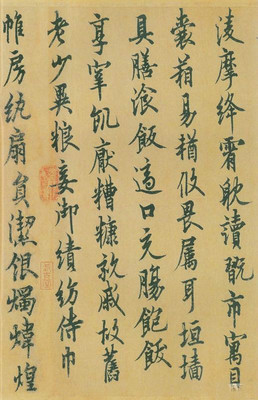 淩摩絳霄耽讀翫市寓目
囊箱易輶攸畏屬耳垣墻
具膳飡飯適口充腸飽飫
享宰飢厭糟糠親戚故舊
老少異粮妾御績紡侍巾
帷房紈扇員潔銀燭煒煌